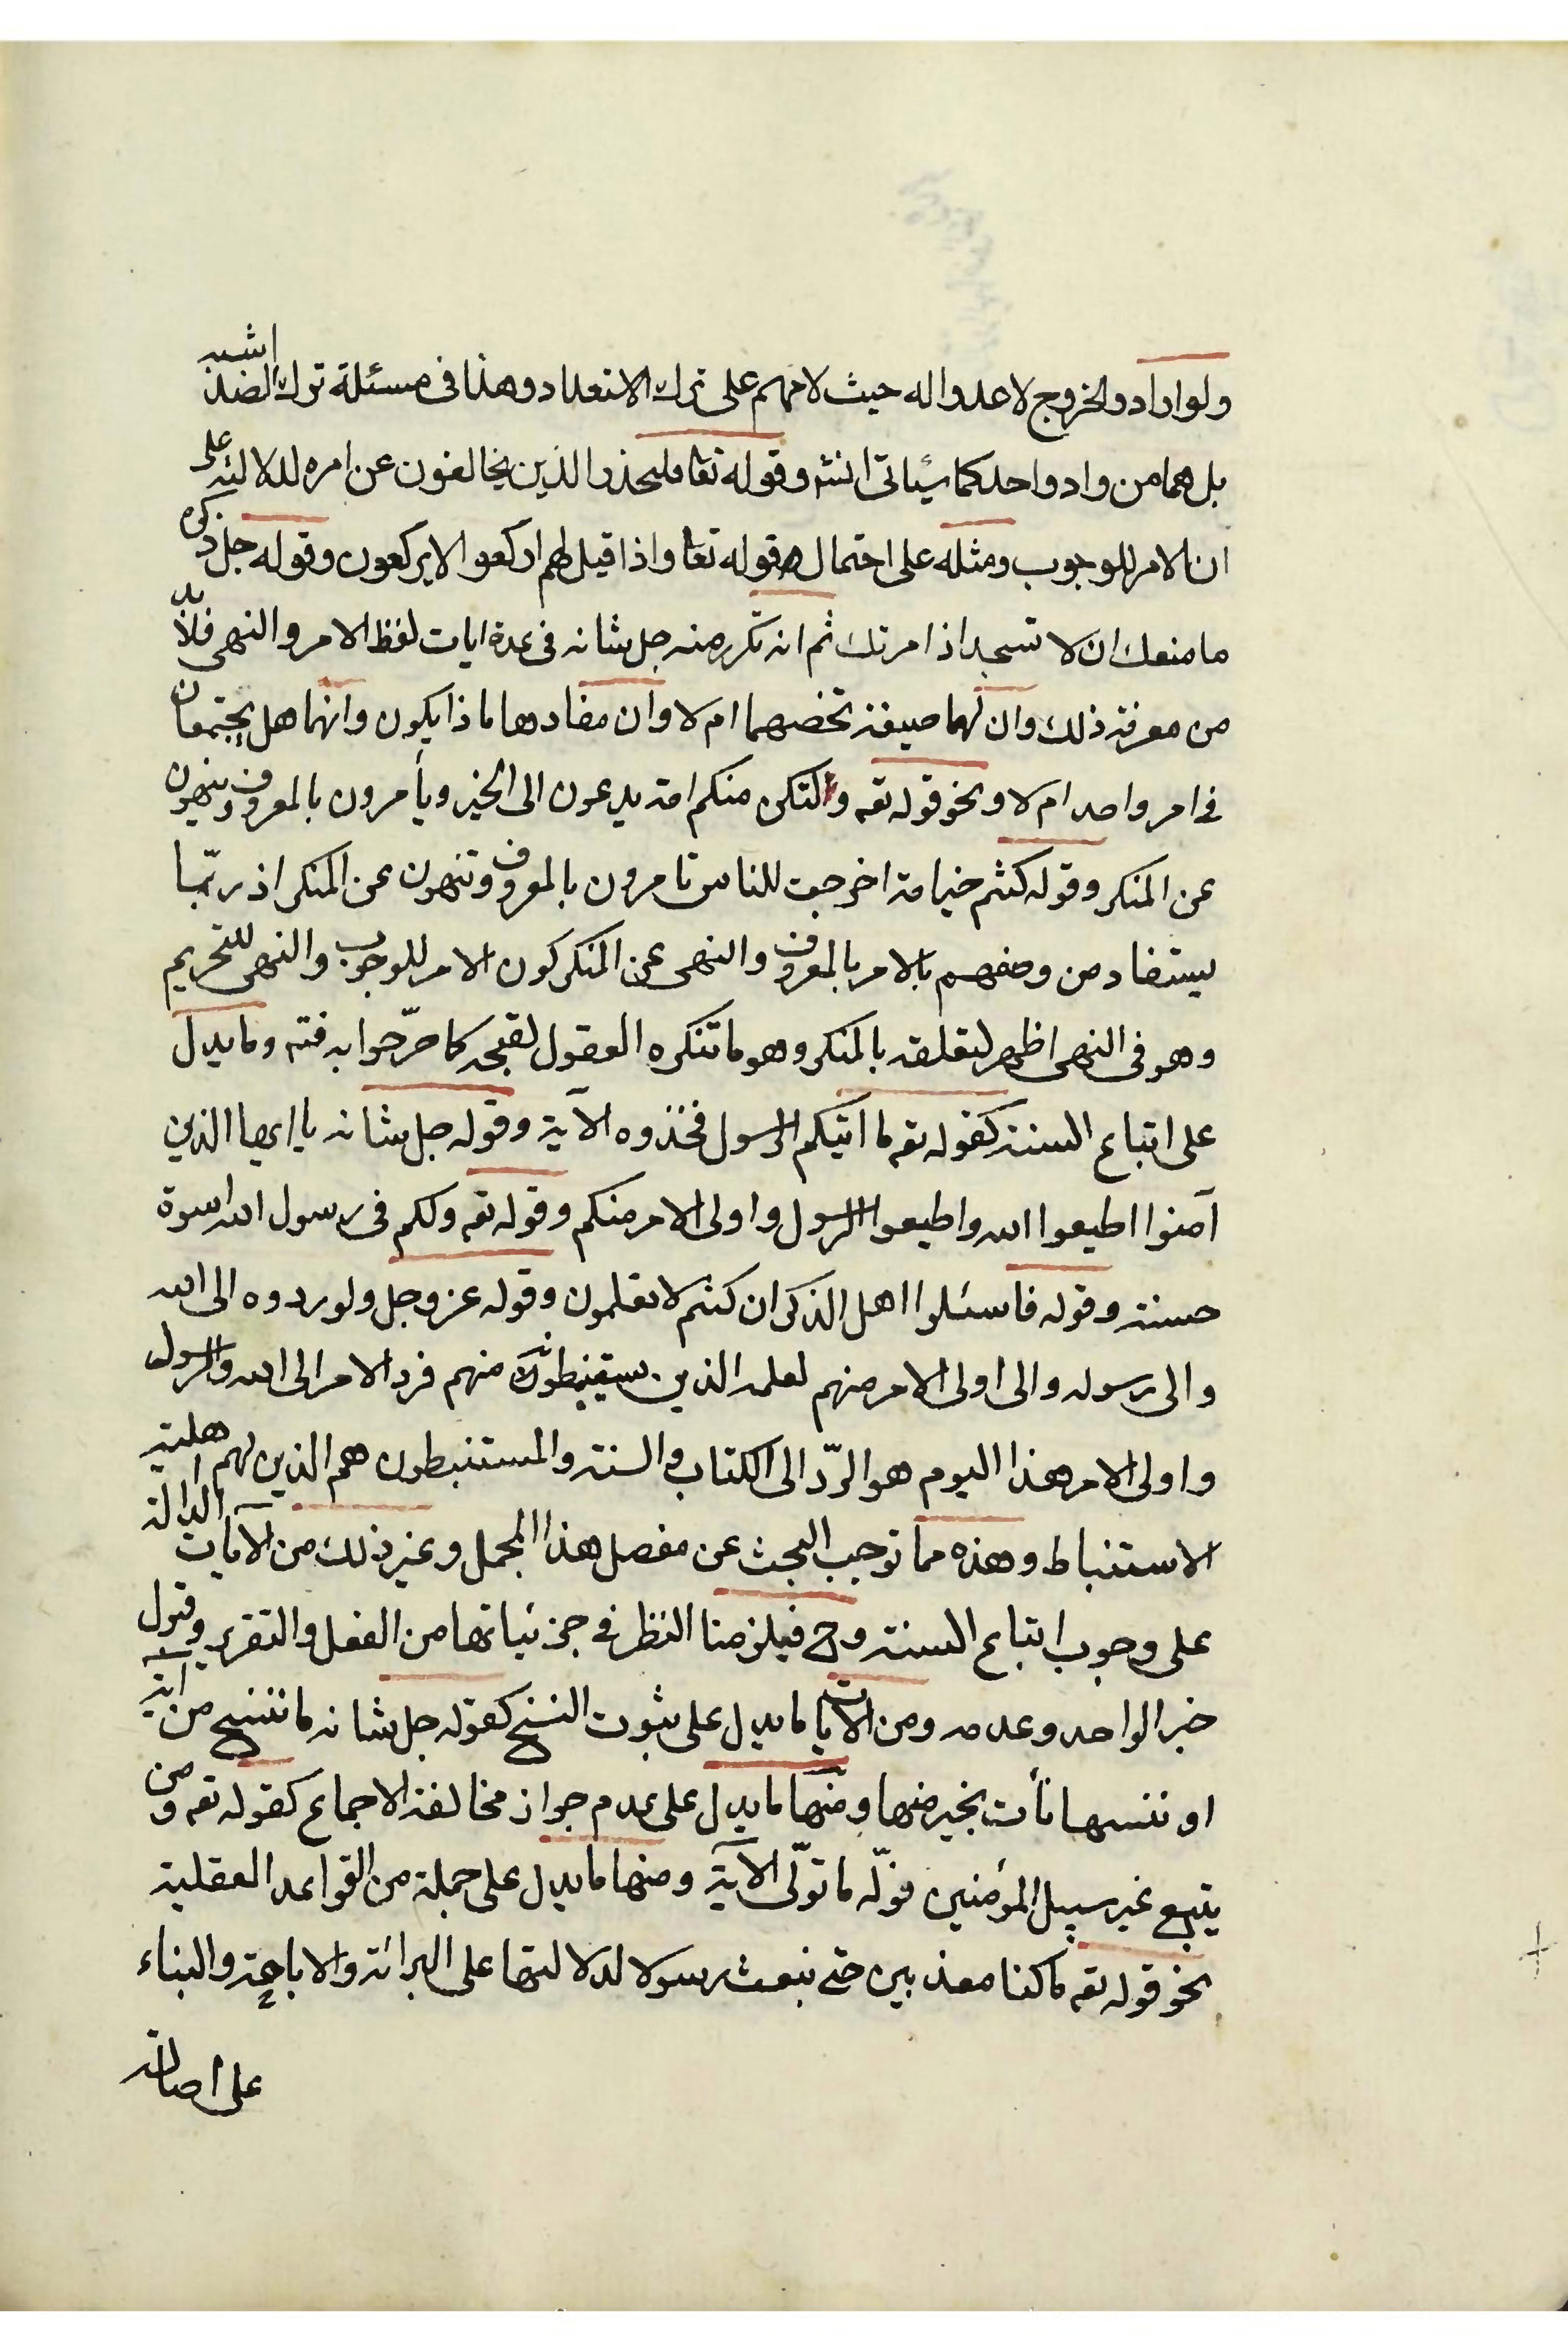 ولو ارادو الخروج لاعدوا له حيث لامهم على ترك الاتعداد وهذا فى مسئلة ترك الضد اشبه
بل هما من واد واحد كما سيأتى انشه وقوله تعا فليحذر الذين يخالفون عن امره لدلالته على
ان الامر للوجوب ومثله على احتمال قوله تعا واذا قيل لهم اركعوا لا يركعون وقوله جل ذكره
ما منعك ان لا تسجد اذ امرتك ثم انه تكرر منه جل شانه فى عدة ايات لفظ الامر والنهى فلا بد
من معرفة ذلك وان لهما صيغة تخصهما ام لا وان مفادها ماذا يكون وانهما هل يجتمعان
فى امر واحد ام لا ونحو قوله تعه ولتكن منكم امة يدعون الى الخير ويأمرون بالمعروف وينهون
عن المنكر وقوله كنتم خير امة اخرجت للناس تامرون بالمعروف وتنهون عن المنكر اذ ربّما
يستفاد من وصفهم بالامر بالمعروف والنهى عن المنكر كون الامر للوجوب والنهى للتحريم
وهو فى النهى اظهر لتعلقه بالمنكر وهو ما تنكره العقول لقبحه كما صرّحوا به فته وما يدل
على اتباع السنة كقوله تعه ما اتيكم الرسول فخذوه الآية وقوله جل شانه يا ايها الذين
آمنوا اطيعوا الله واطيعوا الرسول واولى الامر منكم وقوله تعه ولكم فى رسول الله اسوة
حسنة وقوله فاسئلوا اهل الذكر ان كنتم لا تعلمون وقوله عز وجل ولو ردوه الى الله
والى رسوله والى اولى الامر منهم لعلمه الذين يستنبطونه منهم فرد الامر الى الله والرسول
واولى الامر هذا اليوم هو الردّ الى الكتاب والسنة والمستنبطون هم الذين لهم اهلية
الاستنباط وهذه مما توجب البحث عن مفصل هذا المجمل وغير ذلك من الآيات الدالة
على وجوب اتباع السنة وح فيلزمنا النظر فى جزئياتها من الفعل والتقرير وقبول
خبر الواحد وعدمه ومن الآيات ما يدل على ثبوت النسخ كقوله جل شانه ما ننسخ من اية
او ننسها نأت بخير منها ومنها ما يدل على عدم جواز مخالفة الاجماع كقوله تعه ومن
يتبع غير سبيل المؤمنين نولّه ما تولّى الآية ومنها ما يدل على جملة من القواعد العقلية
نحو قوله تعه ما كنا معذبين حتى نبعث رسولا لدلالتها على البرائة والاباحة والبناء
على اصالة